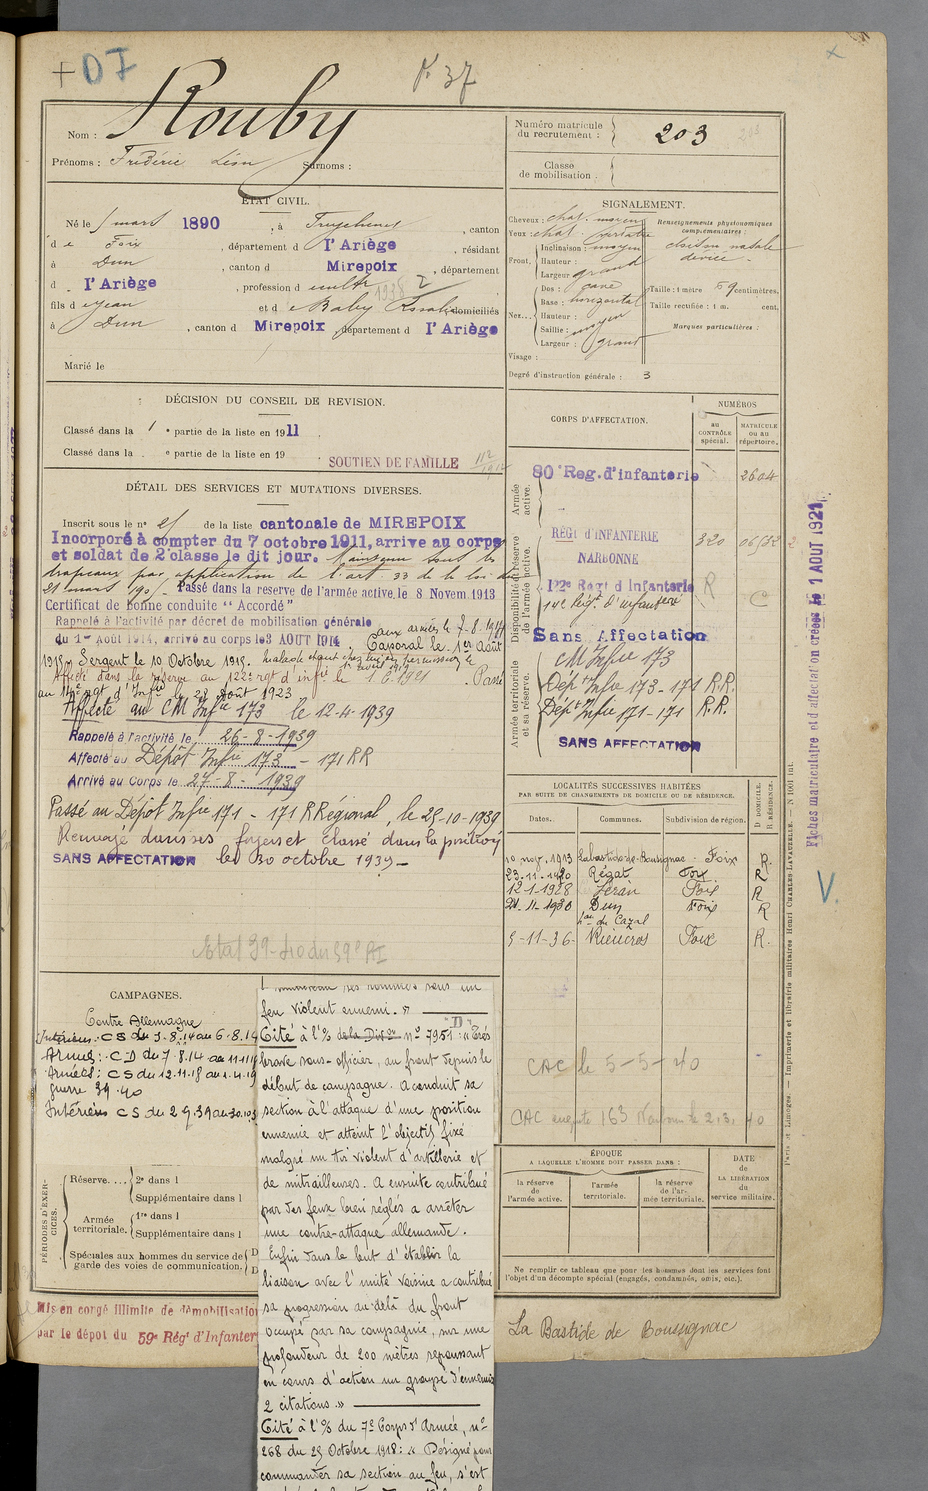 + DI
P. 37
Nom : Rouby
Prénoms : Frédéric Léon Surnoms :
Numéro matricule du recrutement : 203
Classe de mobilisation :
ÉTAT CIVIL.
Né le mars 1890, à , canton
d e Foix, département d l'Ariège, résidant
à Dun, canton d Mirepoix, département
d l'Ariège, profession d
fils d e Jean et d e Baby domiciliés
à Dun, canton d Mirepoix, département d l'Ariège
Marié le
SIGNALEMENT.
Cheveux : chat. moyen
Yeux : chat.
Front. Inclinaison : moyen
Hauteur :
Largeur : grand
Nez... Dos : cave
Base : horizontal
Hauteur :
Saillie : moyen
Largeur : grand
Visage :
Renseignements physionomiques complémentaires :
cloison nasale déviée -
Taille : 1 mètre 69 centimètres.
Taille rectifiée : 1 m. cent.
Marques particulières :
Degré d'instruction générale : 3
DÉCISION DU CONSEIL DE REVISION.
Classé dans la 1 e partie de la liste en 1911
Classé dans la . e partie de la liste en 19
SOUTIEN DE FAMILLE
DÉTAIL DES SERVICES ET MUTATIONS DIVERSES.
Inscrit sous le n° de la liste cantonale de MIREPOIX
Incorporé à compter du 7 octobre 1911, arrive au corps
et soldat de 2e classe le dit jour. Maintenu sous les
drapeaux par application de l'art. 33 de la loi du
21 mars 190 - Passé dans la reserve de l'armée active, le 8 Novem. 1913
Certificat de bonne conduite "Accordé"
Rappelé à l'activité par décret de mobilisation générale
du 1er Août 1914, arrivé au corps le 3 AOUT 1914
aux armées le 7-8-1914
Caporal le 1er Août
1915 Sergent le 10 Octobre 1915.
Affecté dans la réserve au 122e rgt d'infie le 1 6 1921. Passé
au 14e rgt d'Infie le 21 août 1923
Affecté au CM Infie 173 le 12-4-1939
Rappelé à l'activité le 26-8-1939
Affecté au Dépôt Infie 173 - 171 RR
Arrivé au Corps le 27-8-1939
Passé au Dépôt Infie 171 - 171 R Régional, le 25-10-1939
Renvoyé dans ses foyers et classé dans la position
SANS AFFECTATION le 30 octobre 1939 -
Etat 39-40 du 59e RI
CORPS D'AFFECTATION.
NUMÉROS
au CONTRÔLE spécial.
MATRICULE ou au répertoire.
Armée active.
80e Reg. d'infanterie 2604
Disponibilité et réserve de l'armée active.
RÉGt d'INFANTERIE
NARBONNE
122e Regt d'Infanterie R C
14e Régt d'infanterie
Sans Affectation
Armée territoriale et sa réserve.
CM Infie 173
Dépt Infie 173-171 R.R.
Dépt Infie 171-171 R.R.
SANS AFFECTATION
LOCALITÉS SUCCESSIVES HABITÉES
PAR SUITE DE CHANGEMENTS DE DOMICILE OU DE RÉSIDENCE.
Dates. Communes. Subdivision de région. D. DOMICILE. R. RÉSIDENCE.
10 nov. 1913 Labastide-de-Bousignac - Foix R.
23-11-1920 Régat Foix R
12-1-1928 Léran Foix R
21-11-1930 Dun Foix R
5-11-36 Rieucros Foix R.
CAC le 5-5-40
CAMPAGNES.
Contre Allemagne
Intérieur : CS du 3.8.14 au 6.8.14
Armées : CD du 7.8.14 au 11.11.18
Armées : CS du 12.11.18 au
guerre 39-40
Intérieur CS du 2 9.39 au 30.10.3
PÉRIODES D'EXERCICES.
Réserve.... 2e dans l
Supplémentaire dans l
Armée territoriale. 1re dans l
Supplémentaire dans l
Spéciales aux hommes du service de garde des voies de communication.
feu violent ennemi. »
Cité à l'O/ de la Dion "D" n° 7951 : « Très
brave sous-officier, au front depuis le
début de campagne. A conduit sa
section à l'attaque d'une position
ennemie et atteint l'objectif fixé
malgré un tir violent d'artillerie et
de mitrailleuses. A ensuite contribué
par des feux bien réglés a arrêter
une contre-attaque allemande.
Enfin dans le but d'établir la
liaison avec l'unité voisine a contribué
sa progression au-delà du front
occupé par sa compagnie, sur une
profondeur de 200 mètres repoussant
en cours d'action un groupe d'ennemis
2 citations »
Cité à l'O/ du 7e Corps d'Armée, n°
268 du 25 Octobre 1918 : « Désigné pour
commander sa section au feu, s'est
ÉPOQUE
A LAQUELLE L'HOMME DOIT PASSER DANS :
la réserve de l'armée active.
l'armée territoriale.
la réserve de l'armée territoriale.
DATE de LA LIBÉRATION du service militaire.
Ne remplir ce tableau que pour les hommes dont les services font
l'objet d'un décompte spécial (engagés, condamnés, omis, etc.).
Mis en congé illimité de démobilisation
par le dépot du 59e Régt d'Infanter
La Bastide de Bousignac
Fiches matriculaire et d'affectation créées le 1 AOUT 1921
V.
Paris et Limoges. - Imprimerie et librairie militaires Henri CHARLES-LAVAUZELLE. - N 1001 int.